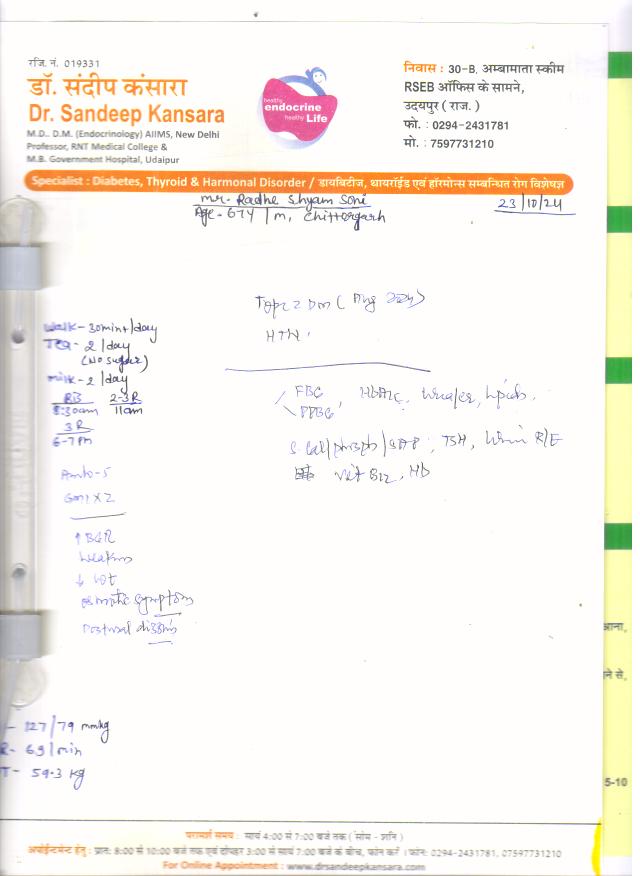 रजि. नं. 019331
डॉ. संदीप कंसारा
Dr. Sandeep Kansara
M.D., D.M. (Endocrinology) AIIMS, New Delhi
Professor, RNT Medical College &
M.B. Government Hospital, Udaipur
healthy
endocrine
healthy Life
निवास : 30-B, अम्बामाता स्कीम
RSEB ऑफिस के सामने,
उदयपुर ( राज. )
फो. : 0294-2431781
मो. : 7597731210
Specialist : Diabetes, Thyroid & Harmonal Disorder / डायबिटीज, थायरॉईड एवं हॉरमोन्स सम्बन्धित रोग विशेषज्ञ
Mr. Radhe Shyam Soni
23/10/24
Age - 67Y / M, Chittorgarh
Type 2 DM (Aug 2024)
HTN
Walk - 30min/day
Tea - 2/day
(No sugar)
Milk - 2/day
RB 2-3R
8:30am 11am
3R
6-7 PM
FBG, HbA1c, Lipids.
PPBG
S. Cal/phosph/SAP, TSH, Urine R/E
Vit B12, Hb
Amlo-5
Gm1 X 2
↑ BGR
Weakness
↓ wt
osmotic symptoms
Postural dizziness
- 127/79 mmHg
R- 69/min
T- 59.3 kg
आना,
ने से,
5-10
परामर्श समय : सायं 4:00 से 7:00 बजे तक ( सोम - शनि )
अपोईन्टमेन्ट हेतु : प्रातः 8:00 से 10:00 बजे तक एवं दोपहर 3:00 से सायं 7:00 बजे के बीच, फोन करें । फोन: 0294-2431781, 07597731210
For Online Appointment : www.drsandeepkansara.com